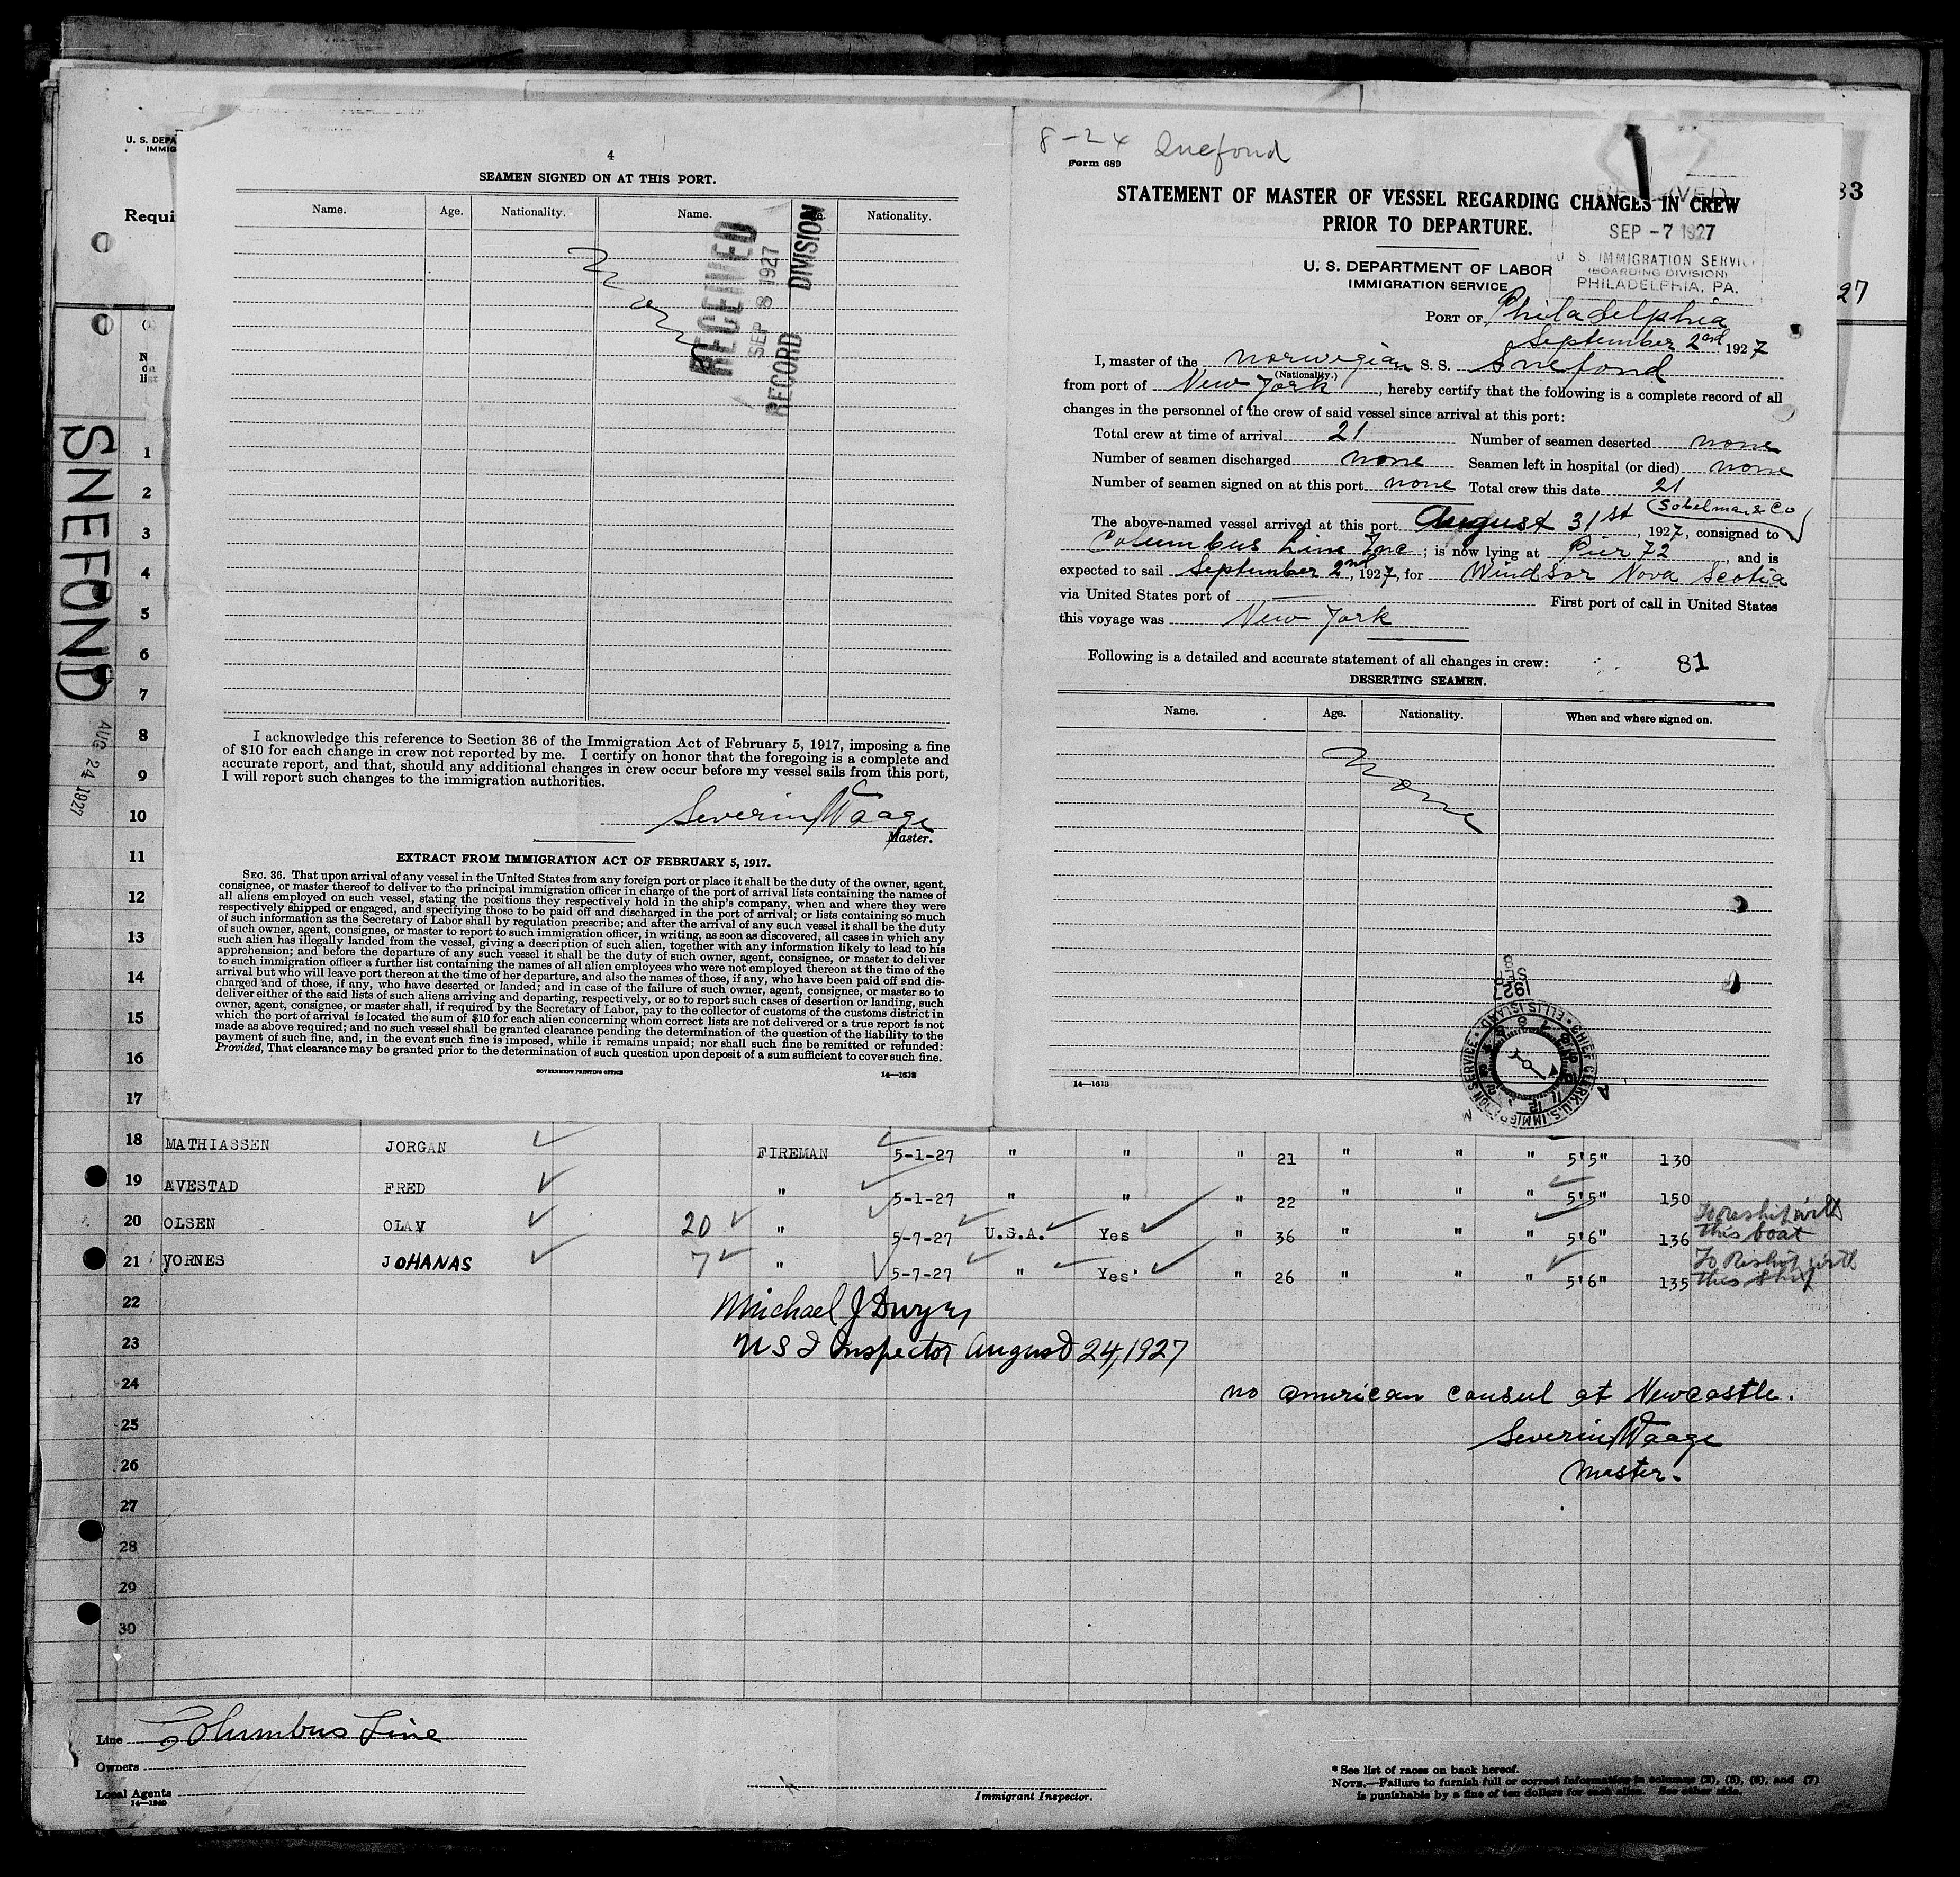 U. S. DEPA
IMMIG
Requi
33
27
SNEFOND
AUG 24 1927
4
SEAMEN SIGNED ON AT THIS PORT.
Name. Age. Nationality. Name. Nationality.
None
RECEIVED
SEP 8 1927
RECORD DIVISION
I acknowledge this reference to Section 36 of the Immigration Act of February 5, 1917, imposing a fine
of $10 for each change in crew not reported by me. I certify on honor that the foregoing is a complete and
accurate report, and that, should any additional changes in crew occur before my vessel sails from this port,
I will report such changes to the immigration authorities.
Severin Waage
Master.
EXTRACT FROM IMMIGRATION ACT OF FEBRUARY 5, 1917.
SEC. 36. That upon arrival of any vessel in the United States from any foreign port or place it shall be the duty of the owner, agent,
consignee, or master thereof to deliver to the principal immigration officer in charge of the port of arrival lists containing the names of
all aliens employed on such vessel, stating the positions they respectively hold in the ship's company, when and where they were
respectively shipped or engaged, and specifying those to be paid off and discharged in the port of arrival; or lists containing so much
of such information as the Secretary of Labor shall by regulation prescribe; and after the arrival of any such vessel it shall be the duty
of such owner, agent, consignee, or master to report to such immigration officer, in writing, as soon as discovered, all cases in which any
such alien has illegally landed from the vessel, giving a description of such alien, together with any information likely to lead to his
apprehension; and before the departure of any such vessel it shall be the duty of such owner, agent, consignee, or master to deliver
to such immigration officer a further list containing the names of all alien employees who were not employed thereon at the time of the
arrival but who will leave port thereon at the time of her departure, and also the names of those, if any, who have been paid off and dis-
charged and of those, if any, who have deserted or landed; and in case of the failure of such owner, agent, consignee, or master so to
deliver either of the said lists of such aliens arriving and departing, respectively, or so to report such cases of desertion or landing, such
owner, agent, consignee, or master shall, if required by the Secretary of Labor, pay to the collector of customs of the customs district in
which the port of arrival is located the sum of $10 for each alien concerning whom correct lists are not delivered or a true report is not
made as above required; and no such vessel shall be granted clearance pending the determination of the question of the liability to the
payment of such fine, and, in the event such fine is imposed, while it remains unpaid; nor shall such fine be remitted or refunded:
Provided, That clearance may be granted prior to the determination of such question upon deposit of a sum sufficient to cover such fine.
GOVERNMENT PRINTING OFFICE 14—1613
8-24 Snefond
Form 689
STATEMENT OF MASTER OF VESSEL REGARDING CHANGES IN CREW
PRIOR TO DEPARTURE.
RECEIVED
SEP -7 1927
U. S. IMMIGRATION SERVICE
(BOARDING DIVISION)
PHILADELPHIA, PA.
U. S. DEPARTMENT OF LABOR
IMMIGRATION SERVICE
PORT OF Philadelphia
September 2nd 1927
I, master of the norwegian S. S. Snefond
(Nationality.)
from port of New York, hereby certify that the following is a complete record of all
changes in the personnel of the crew of said vessel since arrival at this port:
Total crew at time of arrival 21 Number of seamen deserted none
Number of seamen discharged none Seamen left in hospital (or died) none
Number of seamen signed on at this port none Total crew this date 21
Sobelman & Co
The above-named vessel arrived at this port August 31st, 1927, consigned to
Columbus Line Inc; is now lying at Pier 72, and is
expected to sail September 2nd, 1927, for Windsor Nova Scotia
via United States port of First port of call in United States
this voyage was New York
Following is a detailed and accurate statement of all changes in crew: 81
DESERTING SEAMEN.
Name. Age. Nationality. When and where signed on.
None
SEP 8 1927
CHIEF CLERK, U.S. IMMIGRATION SERVICE ELLIS ISLAND
14—1613
1
2
3
4
5
6
7
8
9
10
11
12
13
14
15
16
17
18 MATHIASSEN JORGAN FIREMAN 5-1-27 " " " 21 " " " 5'5" 130
19 AVESTAD FRED " 5-1-27 " " " 22 " " " 5'5" 150
20 OLSEN OLAV 20 " 5-7-27 U.S.A. Yes " 36 " " " 5'6" 136 To reship with this boat
21 VORNES JOHANAS 7 " 5-7-27 " Yes " 26 " " " 5'6" 135 To Reship with this ship
22 Michael J Dwyer
23 U S I Inspector August 24, 1927
24 no american consul at Newcastle.
25 Severin Waage
26 Master.
27
28
29
30
Line Columbus Line
Owners
Local Agents
14—1240
Immigrant Inspector.
* See list of races on back hereof.
NOTE.—Failure to furnish full or correct information in columns (2), (5), (6), and (7)
is punishable by a fine of ten dollars for each alien. See other side.